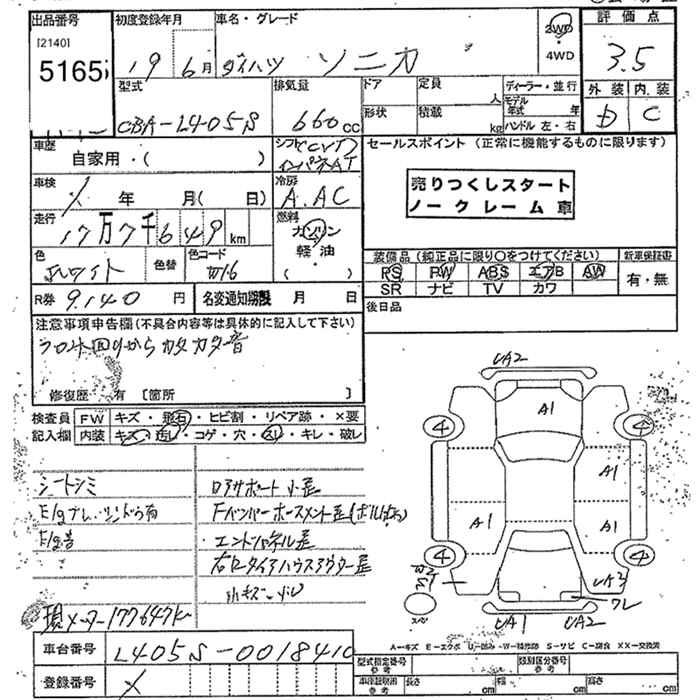 出品番号 初度登録年月 車名・グレード 2WD ・ 4WD 評価点
[2140]
5165
19 6月 ダイハツ ソニカ 3.5
型式 排気量 ドア 定員 人 ディーラー・並行 外装 内装
CBA-L405S 660cc 形状 積載 kg モデル年式 年 ハンドル 左・右 D C
車歴 自家用・( ) シフト CVT インパネAT
セールスポイント (正常に機能するものに限ります)
売りつくしスタート
ノークレーム車
車検 年 月( 日) 冷房 A.AC
走行 17万7千649km 燃料 ガソリン 軽油 ( )
色 ホワイト 色替 色コード W16
装備品 (純正品に限り〇をつけてください) 新車保証書
PS PW ABS エアB AW 有・無
SR ナビ TV カワ
R券 9.140円 名変通知期限 月 日
後日品
注意事項申告欄(不具合内容等は具体的に記入して下さい)
フロント回りからカタカタ音
修復歴 有 [箇所 ]
検査員 FW キズ・飛石・ヒビ割・リペア跡・×要
記入欄 内装 キズ・汚レ・コゲ・穴・スレ・キレ・破レ
シートシミ
E/g音
ロアサポート小歪
エンドパネル歪
右リータイヤハウスアウター歪
小キズ・小凹
現メーター177647K
UA2
A1
4 4
A1
A1 A1
4 4
UA3
ワレ
スペア
UA1 UA2
A-キズ E-エクボ U-凹み W-補修跡 S-サビ C-腐食 XX-交換済
車台番号 L405S-0018410
登録番号 ×
型式指定番号 参考 類別区分番号 参考
車検証取用 参考 長さ cm 幅 cm 高さ cm